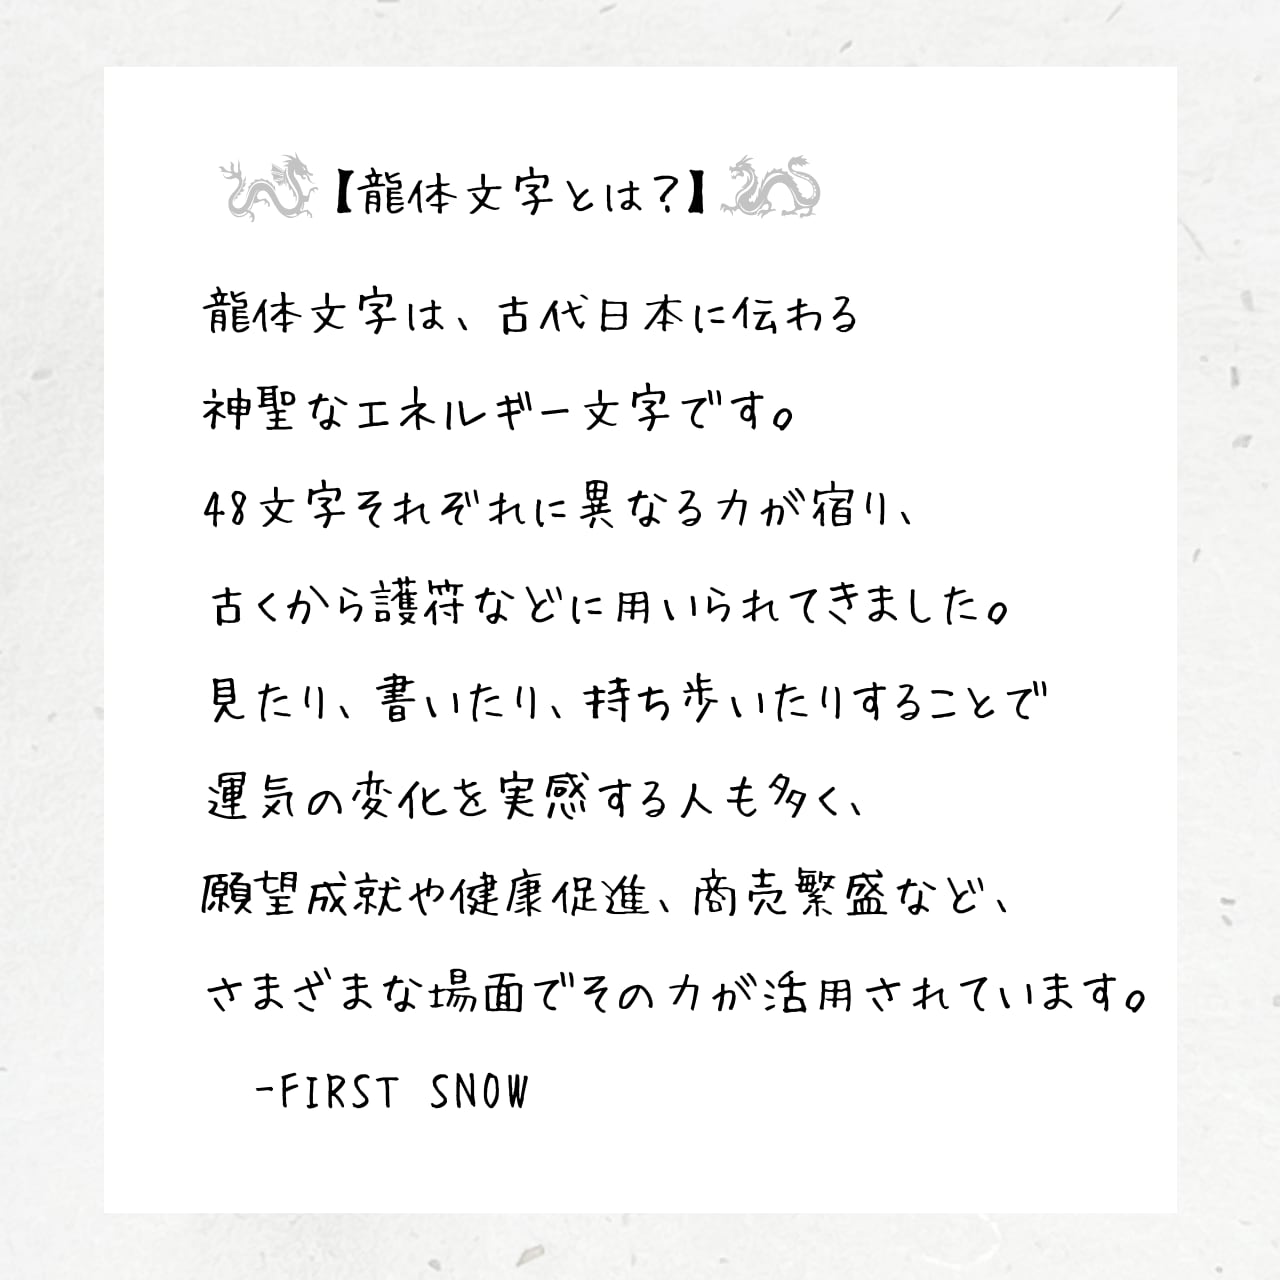 【龍体文字とは?】
龍体文字は、古代日本に伝わる
神聖なエネルギー文字です。
48文字それぞれに異なる力が宿り、
古くから護符などに用いられてきました。
見たり、書いたり、持ち歩いたりすることで
運気の変化を実感する人も多く、
願望成就や健康促進、商売繁盛など、
さまざまな場面でその力が活用されています。
-FIRST SNOW